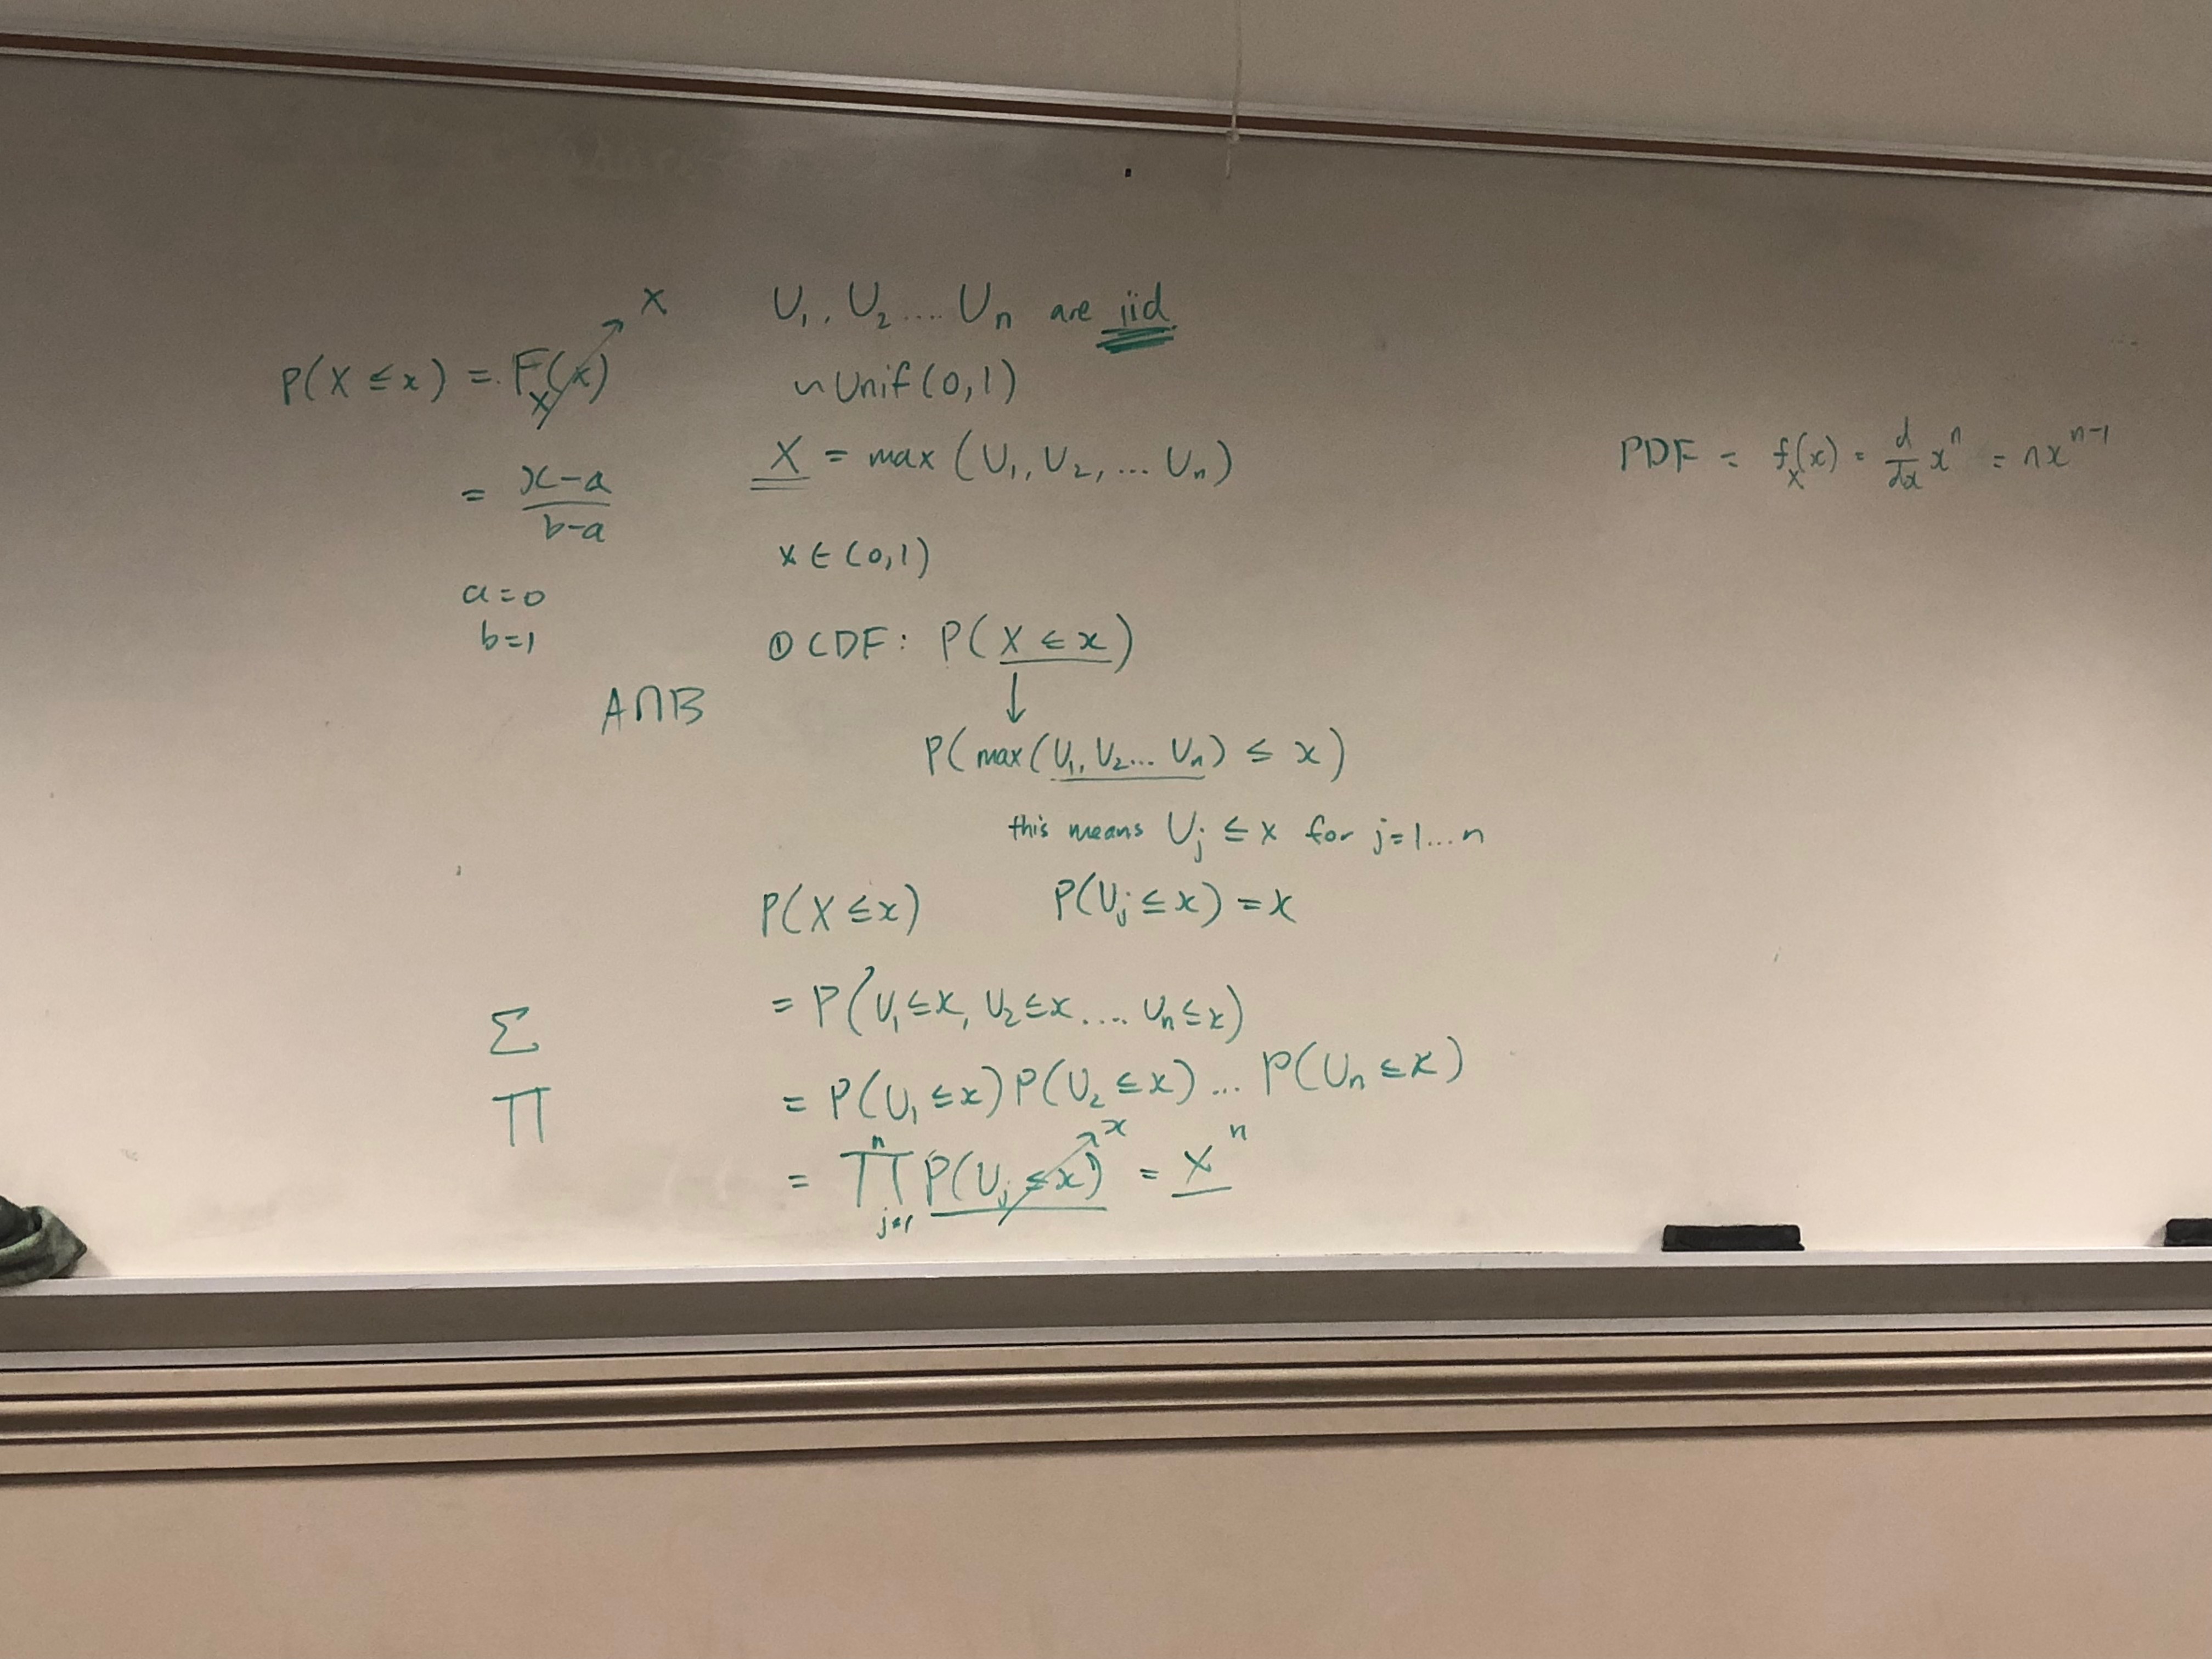 P(X ≤ x) = F_X(x) → x
= (x-a)/(b-a)
a=0
b=1
A∩B
Σ
∏
U₁, U₂.... Uₙ are iid
~ Unif(0,1)
X = max (U₁, U₂, ... Uₙ)
x ∈ (0,1)
① CDF: P(X ≤ x)
↓
P(max(U₁, U₂... Uₙ) ≤ x)
this means Uⱼ ≤ x for j=1...n
P(X ≤ x) P(Uⱼ ≤ x) = x
= P(U₁ ≤ x, U₂ ≤ x .... Uₙ ≤ x)
= P(U₁ ≤ x) P(U₂ ≤ x) ... P(Uₙ ≤ x)
= ∏ⱼ₌₁ⁿ P(Uⱼ ≤ x) → x = xⁿ
PDF = f_X(x) = d/dx xⁿ = nxⁿ⁻¹